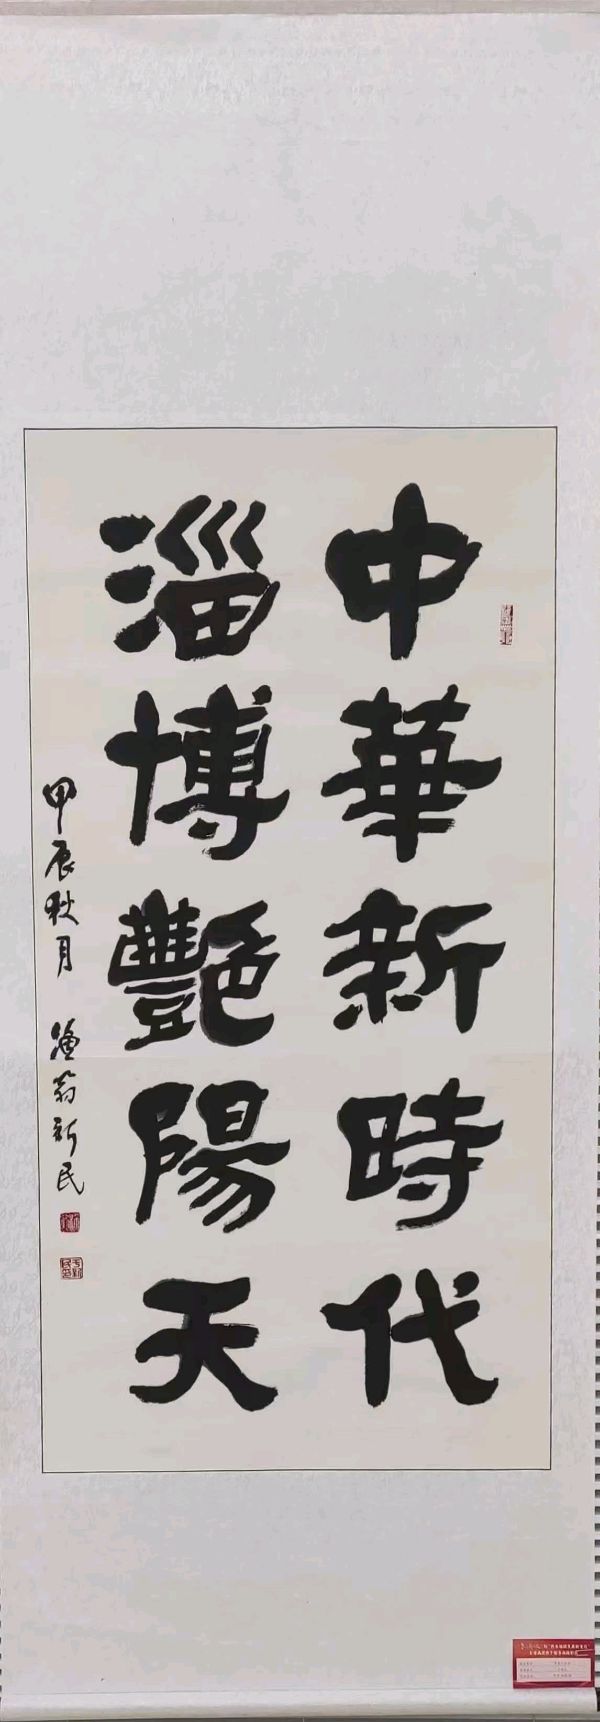 中華新時代
淄博艷陽天
甲辰秋月 漁翁新民